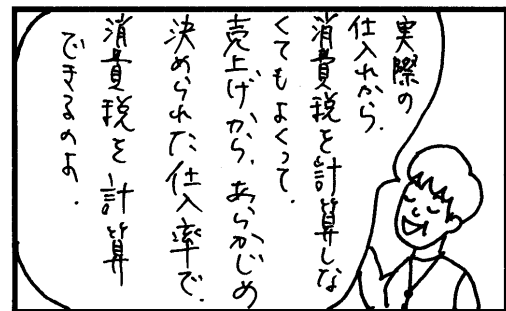 実際の
仕入れから、
消費税を計算しな
くてもよくって、
売上げから、あらかじめ
決められた仕入率で、
消費税を計算
できるのよ。